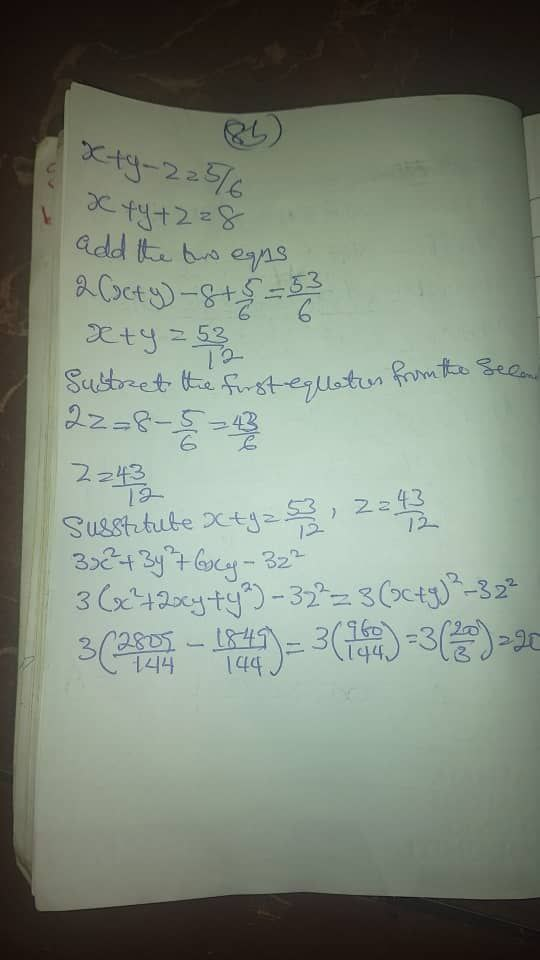 (8b)
x+y-z=5/6
x+y+z=8
add the two eqns
2(x+y)-8+5/6=53/6
x+y=53/12
Subtract the first equation from the Secon
2z=8-5/6=43/6
z=43/12
Susstitute x+y=53/12, z=43/12
3x²+3y²+6xy-3z²
3(x²+2xy+y²)-3z²=3(x+y)²-3z²
3(2809/144-1849/144)=3(960/144)=3(20/3)=20